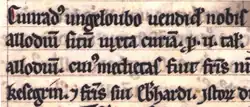 Cunrad⁹ ungeloubo uendidit nobis
allodiũ sitũ iuxta curiã. ꝓ. ii. tal.
allodiũ. cui⁹ medietas fuit fr̃is
keselrin. ⁊ fr̃is sui ebhardi.